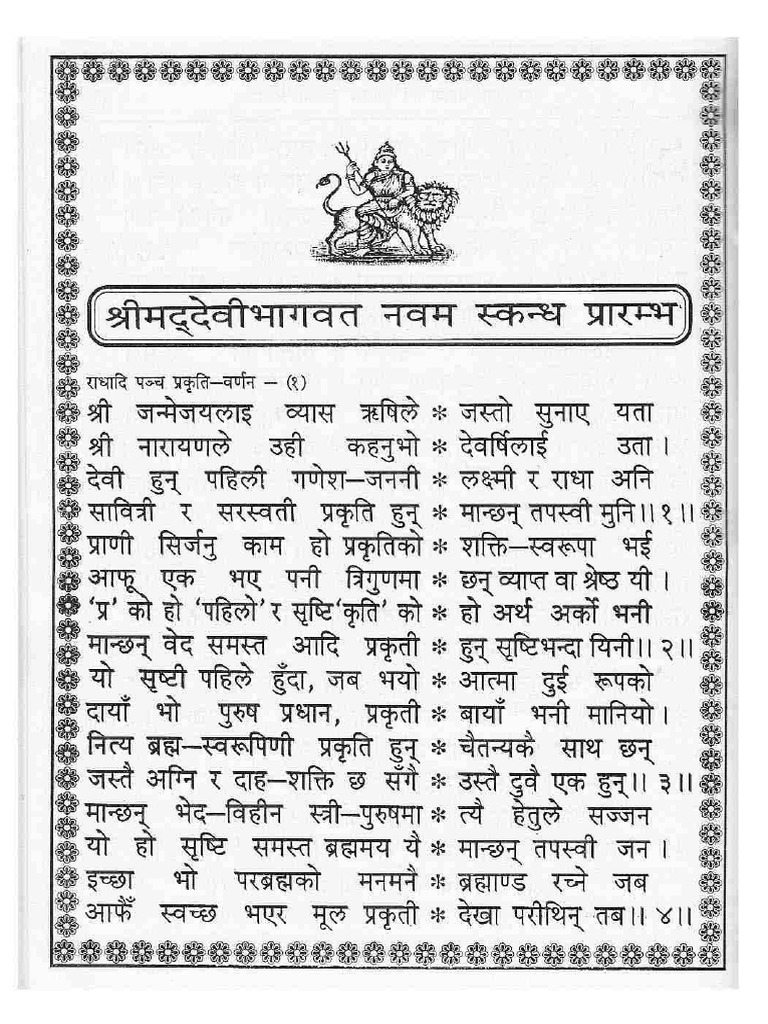 श्रीमद्देवीभागवत नवम स्कन्ध प्रारम्भ
राधादि पञ्च प्रकृति–वर्णन – (१)
श्री जन्मेजयलाइ व्यास ऋषिले * जस्तो सुनाए यता
श्री नारायणले उही कहनुभो * देवर्षिलाई उता ।
देवी हुन् पहिली गणेश–जननी * लक्ष्मी र राधा अनि
सावित्री र सरस्वती प्रकृति हुन् * मान्छन् तपस्वी मुनि॥१॥
प्राणी सिर्जनु काम हो प्रकृतिको * शक्ति–स्वरूपा भई
आफू एक भए पनी त्रिगुणमा * छन् व्याप्त वा श्रेष्ठ यी ।
‘प्र’ को हो ‘पहिलो’ र सृष्टि ‘कृति’ को * हो अर्थ अर्को भनी
मान्छन् वेद समस्त आदि प्रकृती * हुन् सृष्टिभन्दा यिनी॥ २॥
यो सृष्टी पहिले हुँदा, जब भयो * आत्मा दुई रूपको
दायाँ भो पुरुष प्रधान, प्रकृती * बायाँ भनी मानियो ।
नित्य ब्रह्म–स्वरूपिणी प्रकृति हुन् * चैतन्यकै साथ छन्
जस्तै अग्नि र दाह–शक्ति छ सँगै * उस्तै दुवै एक हुन्॥ ३॥
मान्छन् भेद–विहीन स्त्री–पुरुषमा * त्यै हेतुले सज्जन
यो हो सृष्टि समस्त ब्रह्ममय यै * मान्छन् तपस्वी जन ।
इच्छा भो परब्रह्मको मनमनै * ब्रह्माण्ड रच्ने जब
आफैँ स्वच्छ भएर मूल प्रकृती * देखा परीथिन् तब॥ ४॥